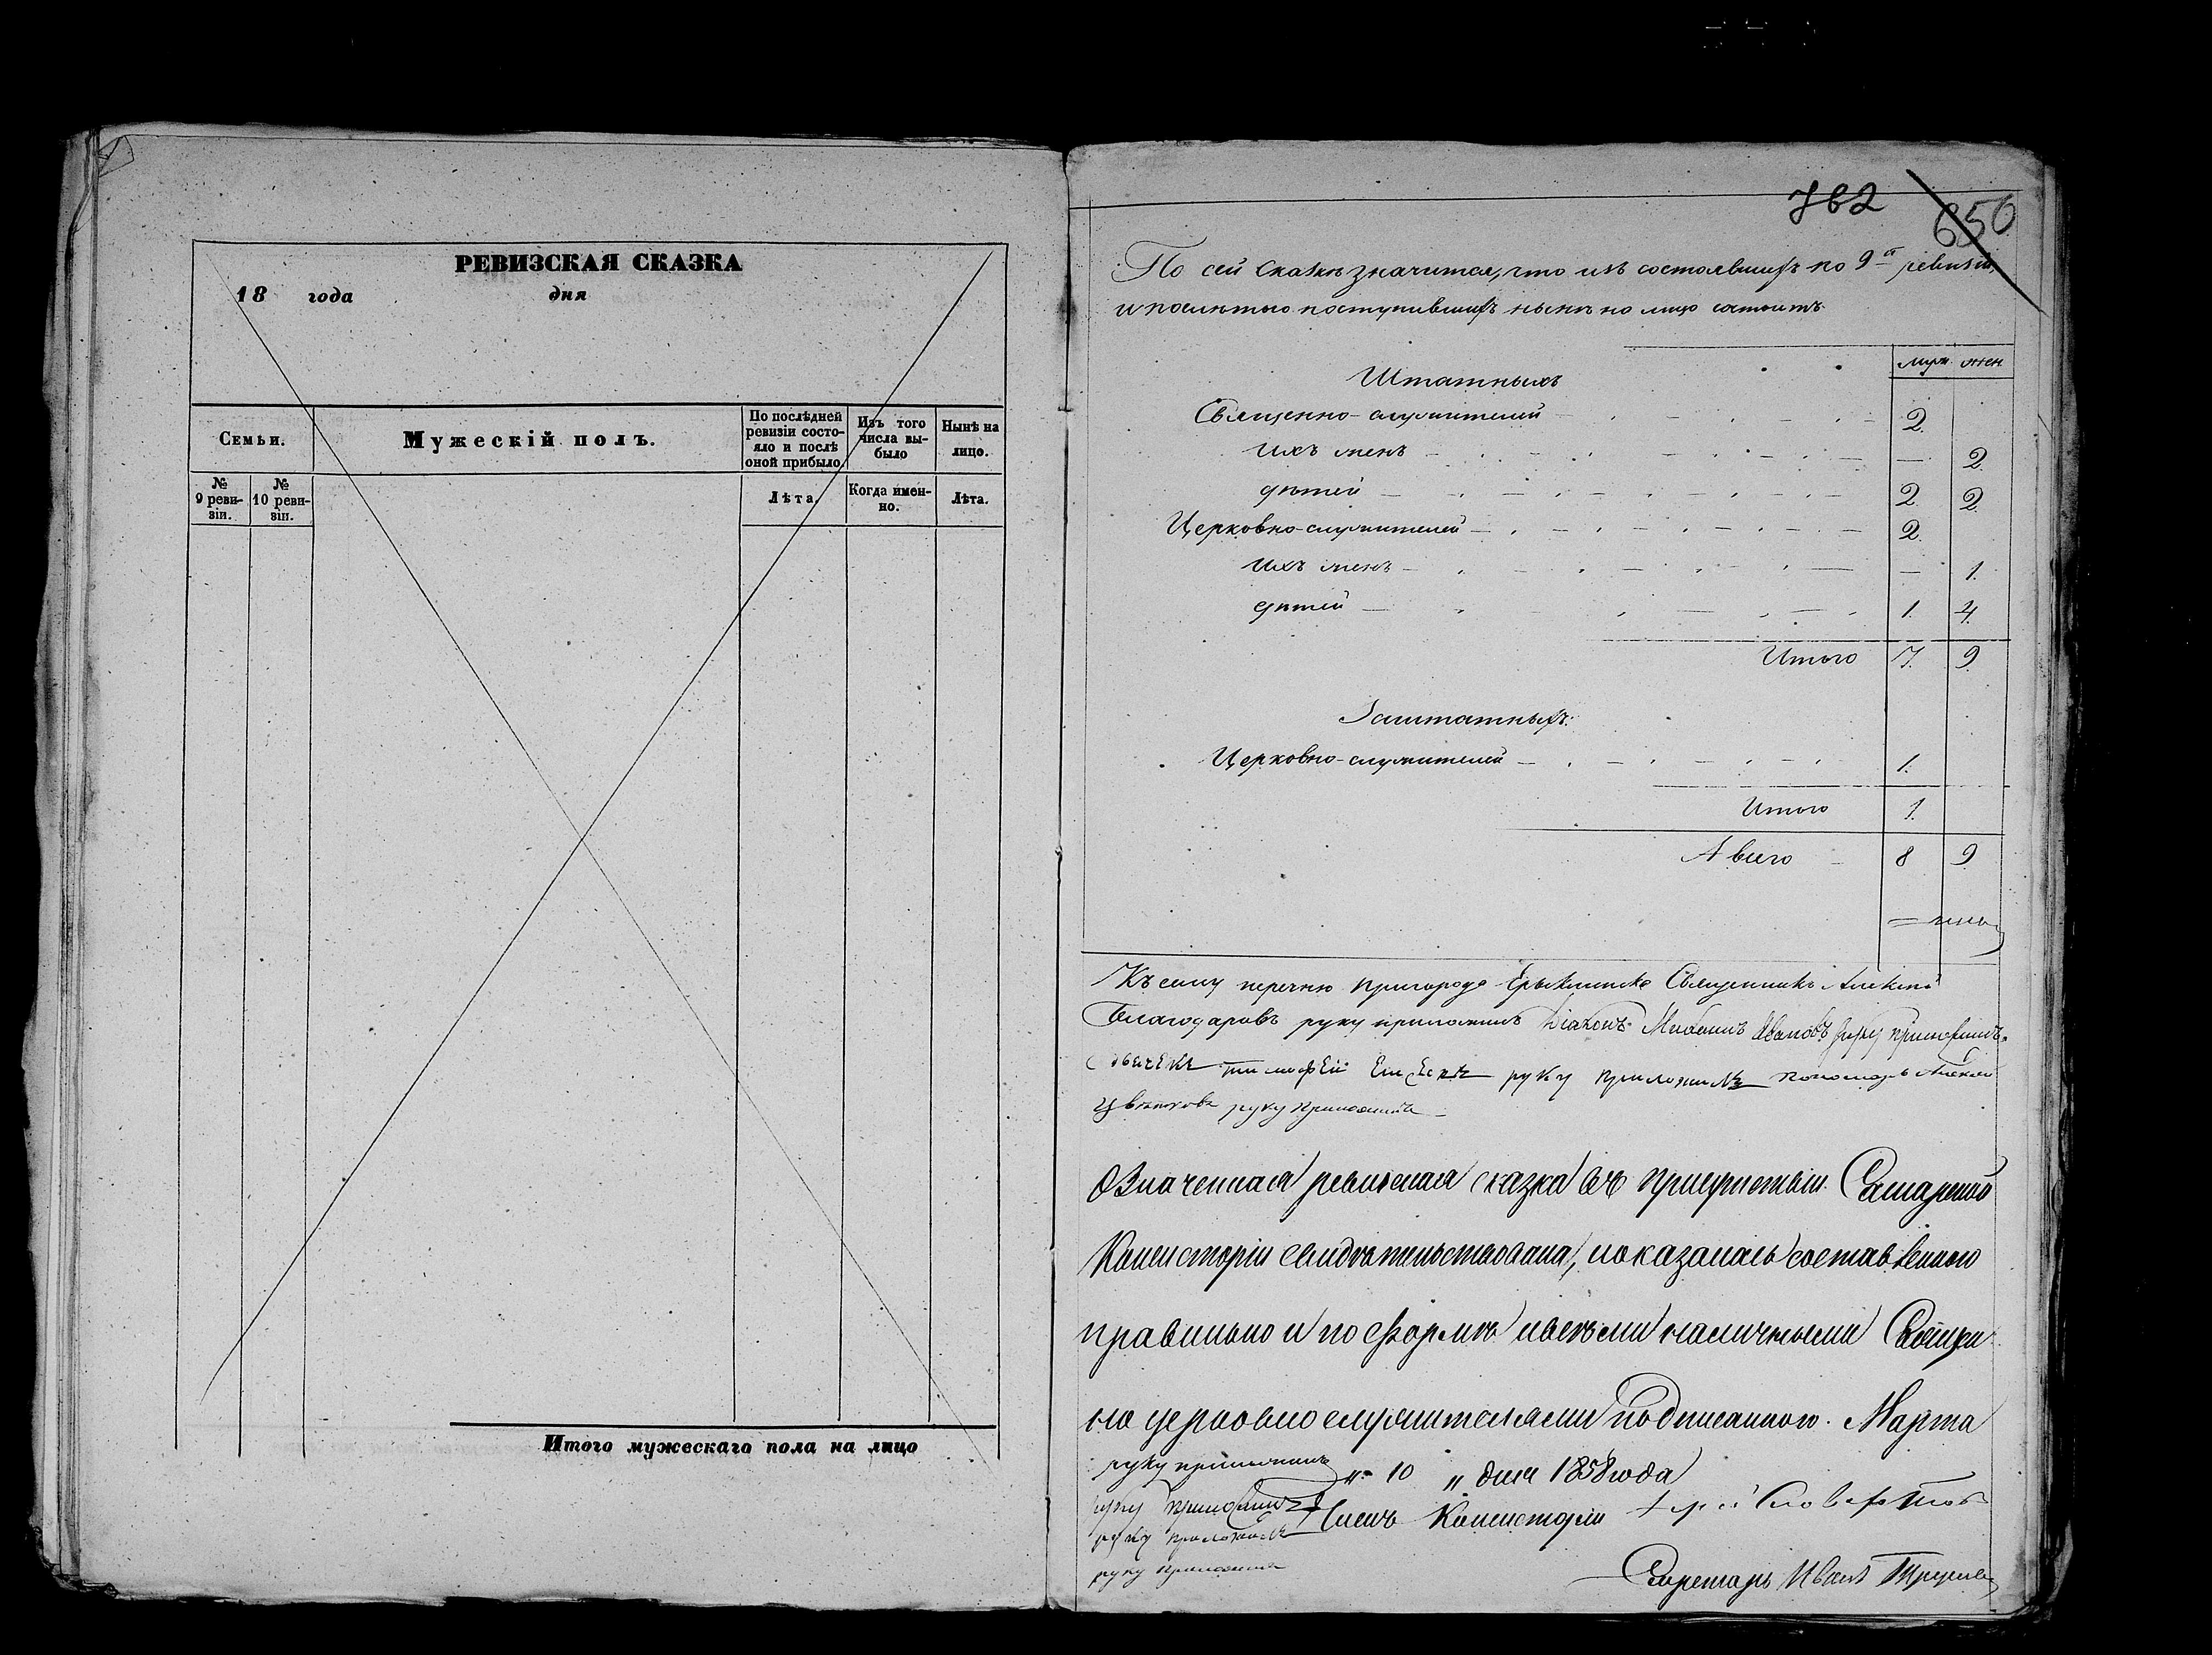 РЕВИЗСКАЯ СКАЗКА
18 года дня
Семьи.
Мужескій полъ.
По послѣдней ревизіи состояло и послѣ оной прибыло.
Изъ того числа выбыло
Нынѣ на лицо.
№ 9 ревизіи.
№ 10 ревизіи.
Лѣта.
Когда именно.
Лѣта.
Итого мужескаго пола на лицо
762 650
По сей сказкѣ значится, что изъ состоявшихъ по 9й ревизіи,
и послѣ того поступившихъ нынѣ на лицо состоитъ
муж. жен.
Штатныхъ
Священно-служителей 2.
ихъ женъ — 2.
дѣтей 2. 2.
Церковно-служителей 2.
ихъ женъ — 1.
дѣтей 1. 4.
Итого 7. 9.
Заштатныхъ:
Церковно-служителей 1.
Итого 1.
А всего 8 9
Къ сему перечню пригорода Ерыклинска Священникъ Алексѣй
Благодаровъ руку приложилъ Діаконъ Ивановъ руку приложилъ
руку приложилъ пономарь Алексѣй
Цвѣтковъ руку приложилъ
Означенная ревизская сказка въ присутствіи Самарской
Консисторіи свидѣтельствована, показалась составленною
правильно и по формѣ и всѣми наличными Священ
но церковнослужителями подписанною. Марта
руку приложилъ „ 10 „ дня 1858 года
руку приложилъ Членъ Консисторіи
руку приложилъ
руку приложилъ
Секретарь Иванъ